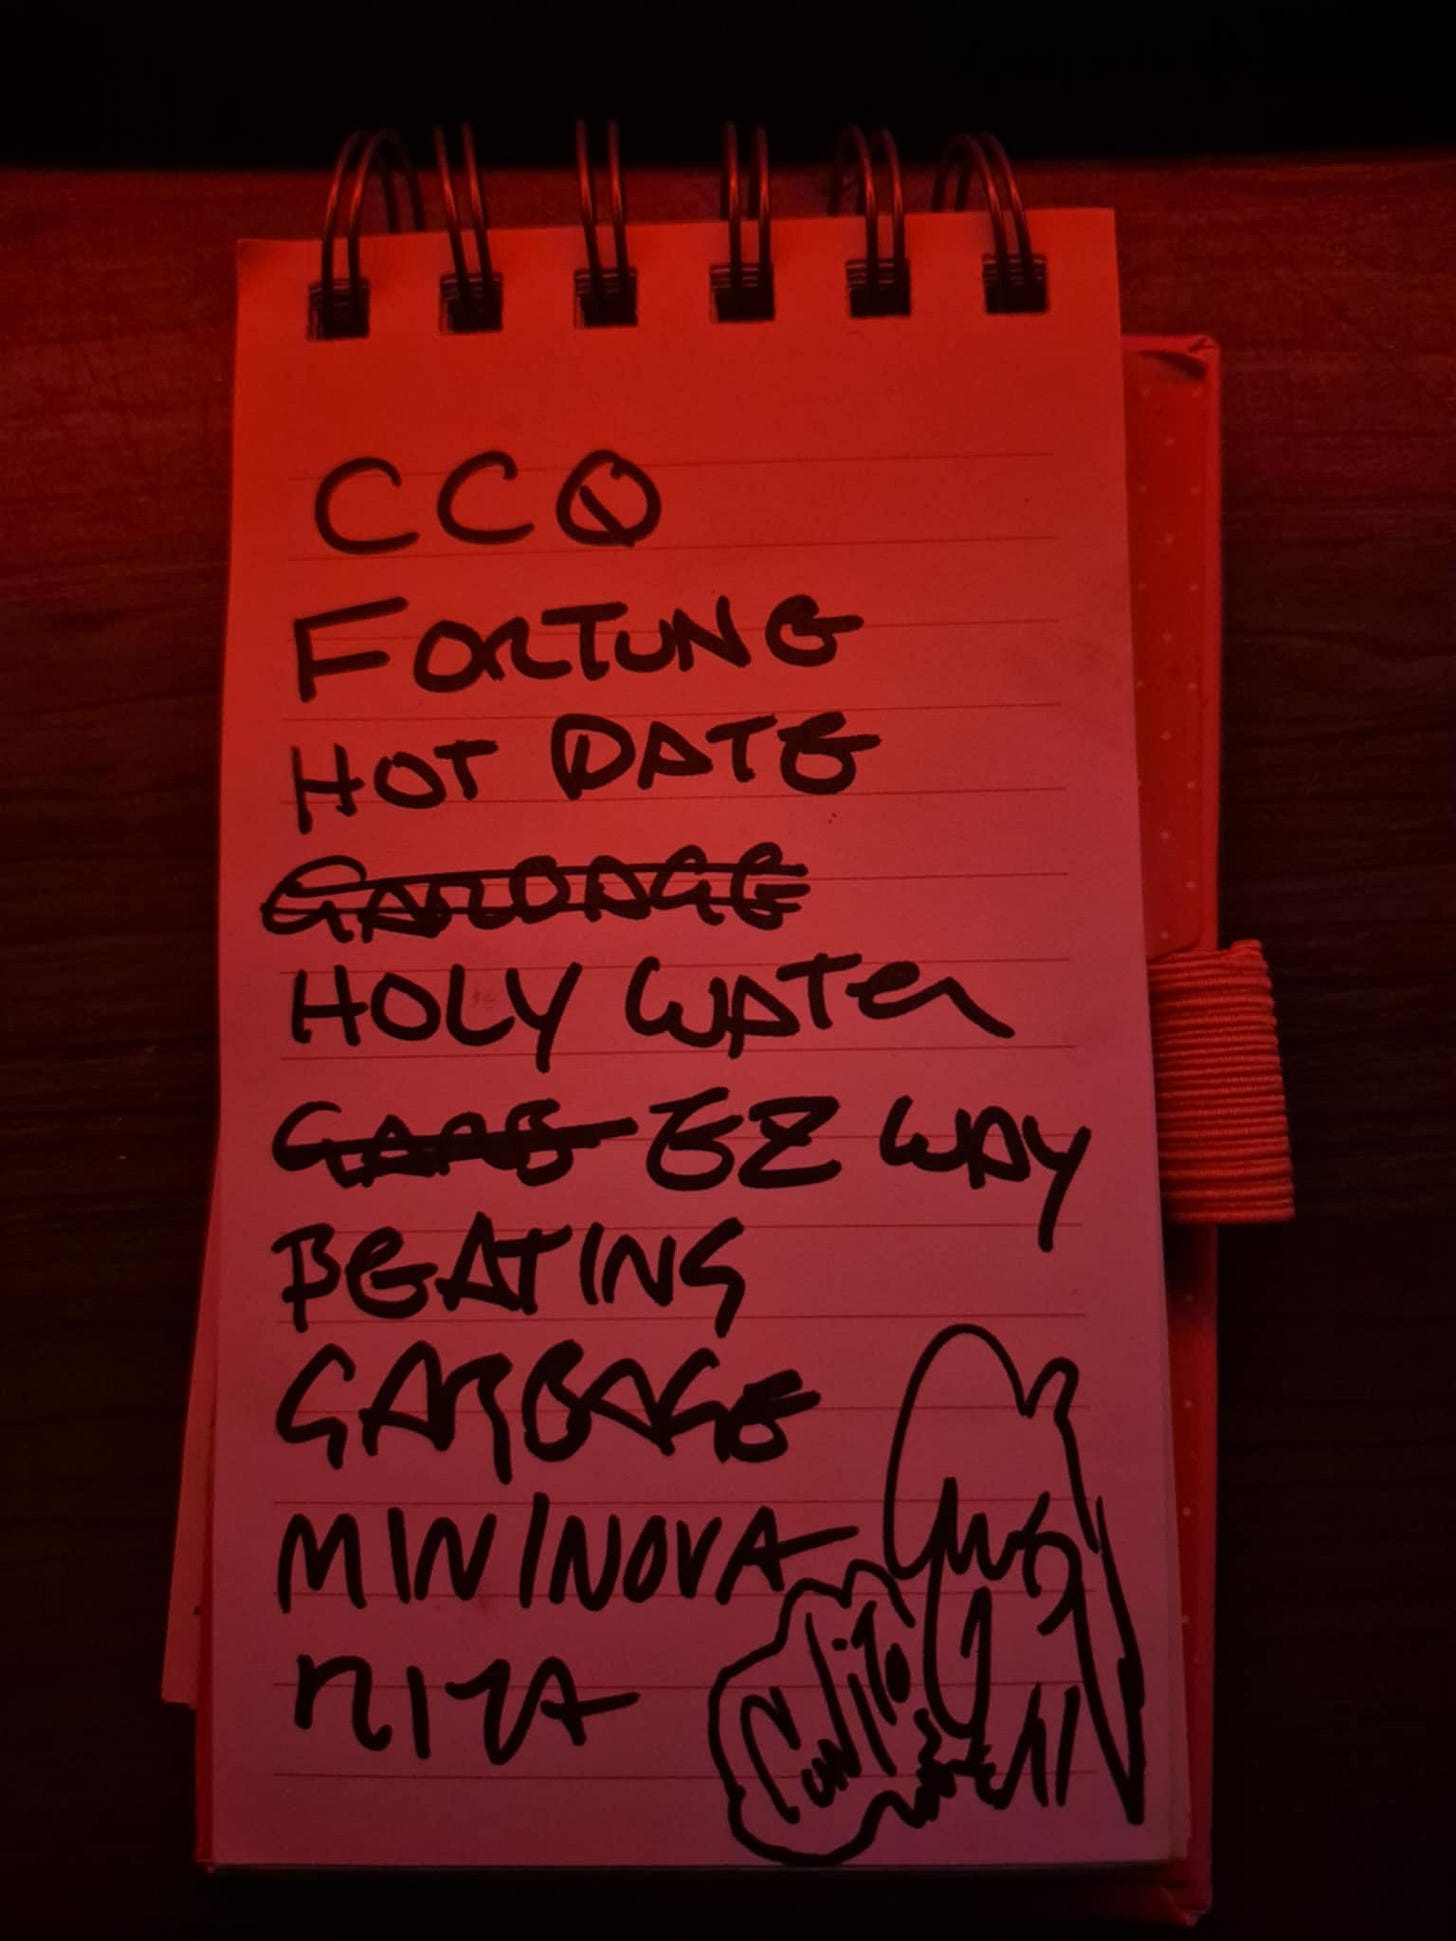 CCQ
FORTUNE
HOT DATE
GARBAGE
HOLY WATER
EZ WAY
BEATING
GARBAGE
MININOVA